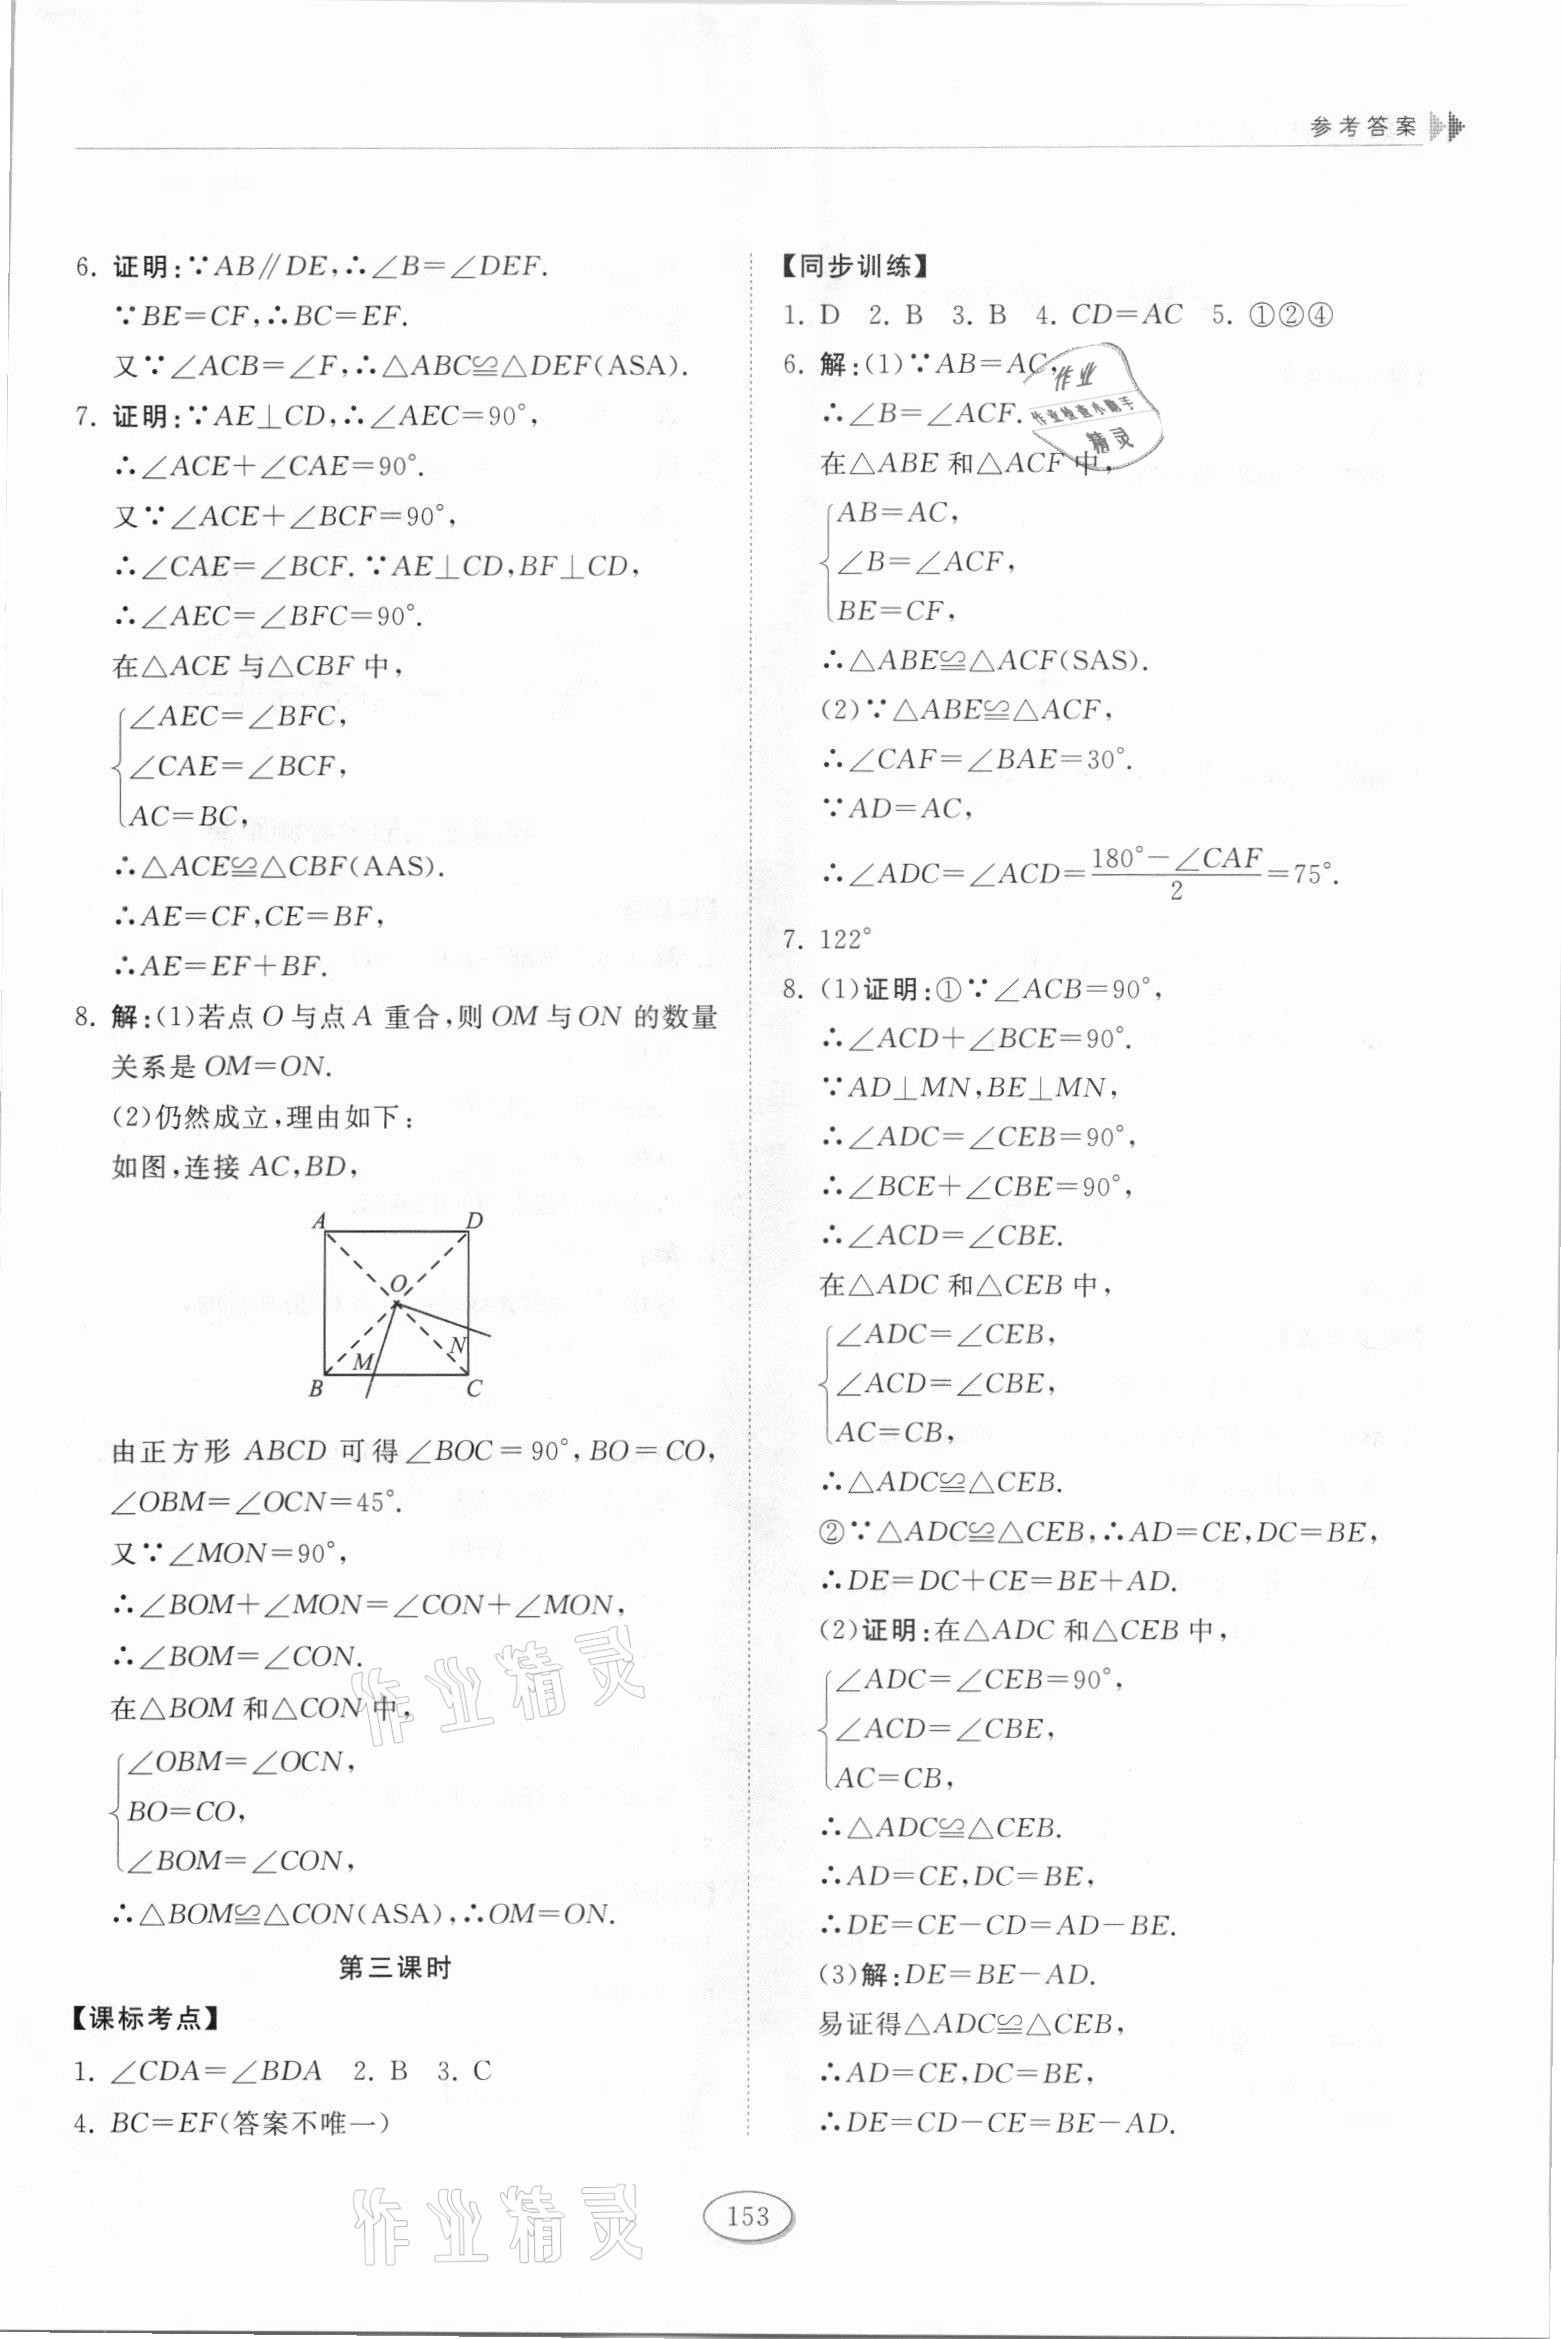 参考答案
6. 证明:∵AB∥DE,∴∠B=∠DEF.
∵BE=CF,∴BC=EF.
又∵∠ACB=∠F,∴△ABC≌△DEF(ASA).
7. 证明:∵AE⊥CD,∴∠AEC=90°,
∴∠ACE+∠CAE=90°.
又∵∠ACE+∠BCF=90°,
∴∠CAE=∠BCF.∵AE⊥CD,BF⊥CD,
∴∠AEC=∠BFC=90°.
在△ACE与△CBF中,
∠AEC=∠BFC,
∠CAE=∠BCF,
AC=BC,
∴△ACE≌△CBF(AAS).
∴AE=CF,CE=BF,
∴AE=EF+BF.
8. 解:(1)若点O与点A重合,则OM与ON的数量
关系是OM=ON.
(2)仍然成立,理由如下:
如图,连接AC,BD,
A D
O
N
M
B C
由正方形ABCD可得∠BOC=90°,BO=CO,
∠OBM=∠OCN=45°.
又∵∠MON=90°,
∴∠BOM+∠MON=∠CON+∠MON,
∴∠BOM=∠CON.
在△BOM和△CON中,
∠OBM=∠OCN,
BO=CO,
∠BOM=∠CON,
∴△BOM≌△CON(ASA),∴OM=ON.
第三课时
【课标考点】
1. ∠CDA=∠BDA 2. B 3. C
4. BC=EF(答案不唯一)
【同步训练】
1. D 2. B 3. B 4. CD=AC 5. ①②④
6. 解:(1)∵AB=AC,
∴∠B=∠ACF.
在△ABE和△ACF中,
AB=AC,
∠B=∠ACF,
BE=CF,
∴△ABE≌△ACF(SAS).
(2)∵△ABE≌△ACF,
∴∠CAF=∠BAE=30°.
∵AD=AC,
∴∠ADC=∠ACD=(180°-∠CAF)/2=75°.
7. 122°
8. (1)证明:①∵∠ACB=90°,
∴∠ACD+∠BCE=90°.
∵AD⊥MN,BE⊥MN,
∴∠ADC=∠CEB=90°,
∴∠BCE+∠CBE=90°,
∴∠ACD=∠CBE.
在△ADC和△CEB中,
∠ADC=∠CEB,
∠ACD=∠CBE,
AC=CB,
∴△ADC≌△CEB.
②∵△ADC≌△CEB,∴AD=CE,DC=BE,
∴DE=DC+CE=BE+AD.
(2)证明:在△ADC和△CEB中,
∠ADC=∠CEB=90°,
∠ACD=∠CBE,
AC=CB,
∴△ADC≌△CEB.
∴AD=CE,DC=BE,
∴DE=CE-CD=AD-BE.
(3)解:DE=BE-AD.
易证得△ADC≌△CEB,
∴AD=CE,DC=BE,
∴DE=CD-CE=BE-AD.
作业
作业检查小助手
精灵
作业精灵
作业精灵
153